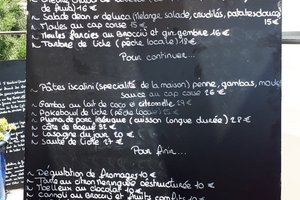 de fruits) 17 €
~ Salade dean or deluca (mélange salade, crudités, patates douces
15 €
~ Moules au cap corse 15 €
~ Moules farcies au Brocciu et gin gembre 16 €
~ Tartare de liche (pêche locale) 18 €
Pour continuer...
~ Pâtes iscalini (spécialité de la maison) penne, gambas, moules
sauce au cap corse 26 €
~ Gambas au lait de coco et citronelle 27 €
~ Pokebowl de liche (pêche locale) 25 €
~ Pluma de porc ibérique (cuisson longue durée) 28 €
~ Côte de boeuf 32 €
~ Lasagne du jour 20 €
~ Sauté de liche 27 €
Pour finir...
~ Dégustation de fromages 10 €
~ Tarte au citron meringuée destructurée 10 €
~ Moelleux au chocolat 10 €
~ Cannoli au Brocciu et fruits confits 10 €